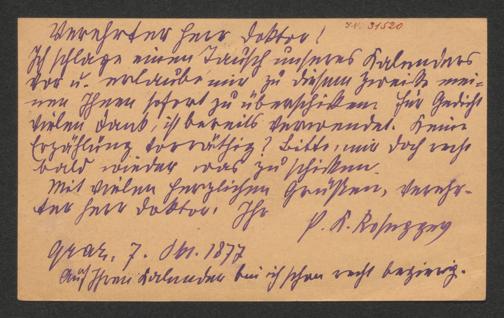 J.N. 31520
Verehrter Herr Doktor!
Ich schlage einen Tausch unseres Kalenders
vor u. erlaube mir zu diesem Zwecke mei-
nen Ihnen sofort zu überschicken. Für Gedicht
vielen Dank, ist bereits verwendet. Keine
Erzählung vorräthig? Bitte, mir doch recht
bald wieder was zu schicken.
Mit vielen herzlichen Grüßen, verehr-
ter Herr Doktor, Ihr
P. K. Rosegger
Graz, 7. Okt. 1877
Auf Ihren Kalender bin ich schon recht begierig.